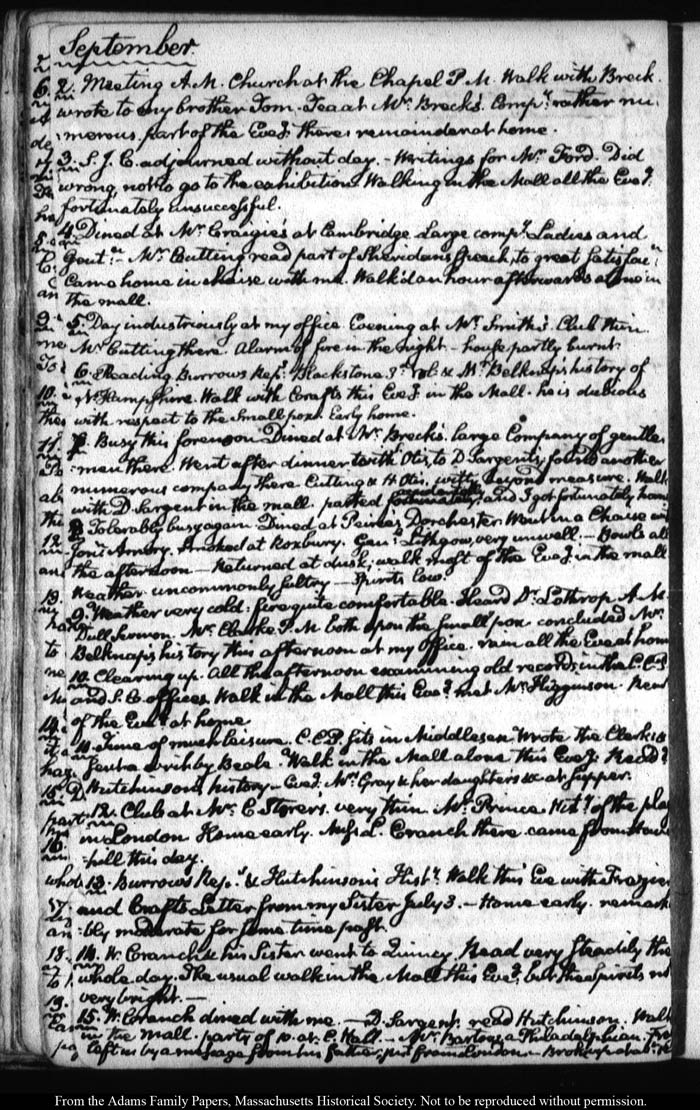 September.
2. Meeting A.M. Church at the Chapel P.M. Walk with Breck.
wrote to my brother Tom. Tea at Mr. Breck's. Compy. rather nu:
:merous, part of the Eveg. there; remainder at home.
3. S. J. C. adjourned without day. - Writings for Mr. Ford. Did
wrong, not to go to the exhibition. Walking in the Mall all the Eveg.
fortunately unsuccessful.
4. Dined at Mr. Craigie's at Cambridge. Large compy. Ladies and
Gentn. - Mr. Cutting read part of Sheridan's Speech, to great satisfacn.
Came home in chaise with me. Walk'd an hour afterwards alone in
the mall.
5. Day industriously at my office. Evening at Mr. Smith's. Club thin.
Mr. Cutting there. Alarm of fire in the night - house partly burnt.
6. Reading Burrows Rep: Blackstone 3d. vol: & Mr. Belknap's history of
N. Hampshire. Walk with Crafts this Eveg. in the Mall. he is dubious
with respect to the Small pox. Early home.
7. Busy this forenoon. Dined at Mr. Breck's. large Company of gentle:
:men there. Went after dinner with Otis, to D. Sargent's, found another
numerous company there. Cutting & H. Otis, witty beyond measure. Walk
with D. Sargent in the mall. parted and I got fortunately home
8. Tolerably busy again. Dined at Peirce's Dorchester. Went in a Chaise with
Jona. Amory. Smoked at Roxbury. Genl. Lithgow, very unwell. - Bowls all
the afternoon - Returned at dusk; walk most of the Eveg. in the mall
Weather uncommonly sultry - Spirits low.
9. Weather very cold: fire quite comfortable. Heard Dr. Lothrop A.M.
Dull Sermon. Mr. Clarke P.M. both upon the small pox. concluded Mr.
Belknap's history this afternoon at my office. rain all the Eve at home
10. Clearing up. All the afternoon examining old records in the C.C.P.
and S. C. offices. Walk in the Mall this Eveg. met Mr. Higginson. Rem
of the Eveg. at home
11. Time of much leisure. C.C.P. sits in Middlesex. Wrote the Clerk &
sent a writ by Beale. Walk in the Mall alone this Eveg. Read
Hutchinson's history - Eveg. Mrs. Gray & her daughters &c at supper.
12. Club at Mr. E Storer's. very thin. Mr. Prince Histy. of the plag
in London. Home early. Miss L. Cranch there. came from Have
:hill this day.
13. Burrows Rep.s & Hutchinson's Histy. Walk this Eve with Frazier
and Crafts. Letter from my Sister July 3. - Home early. remark
:bly moderate for some time past.
14. W. Cranch & his Sister went to Quincy. Read very steadily the
whole day. The usual walk in the Mall this Eveg. but the spirits not
very bright. -
15. W. Cranch dined with me. - D. Sargent. read Hutchinson. Walk
in the Mall. party of 10. at C. Hall. - Mr. Barton, a Philadelphian.
left us by a message from his father, just from London. - Broke up at
From the Adams Family Papers, Massachusetts Historical Society. Not to be reproduced without permission.